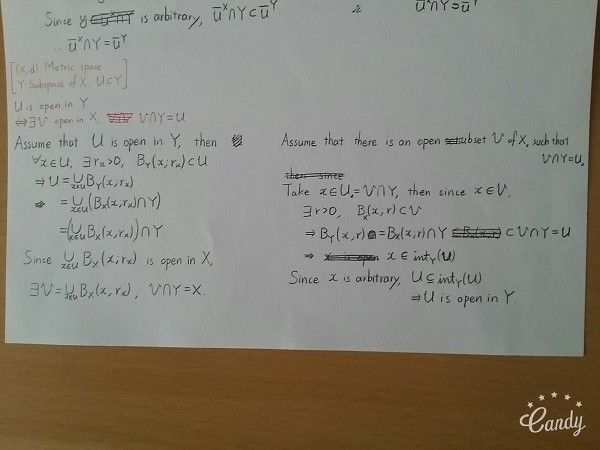 Since y is arbitrary, Ū^X∩Y⊂Ū^Y
Ū^X∩Y⊃Ū^Y
∴ Ū^X∩Y=Ū^Y
[(X,d): Metric space
Y: Subspace of X, U⊂Y]
U is open in Y
⇔∃V open in X, V∩Y=U
Assume that U is open in Y, then
∀x∈U, ∃r_x>0, B_Y(x,r_x)⊂U
⇒U=∪_{x∈U}B_Y(x,r_x)
⇒ =∪_{x∈U}(B_X(x,r_x)∩Y)
=(∪_{x∈U}B_X(x,r_x))∩Y
Since ∪_{x∈U}B_X(x,r_x) is open in X,
∃V=∪_{x∈U}B_X(x,r_x), V∩Y=X.
Assume that there is an open subset V of X, such that
V∩Y=U,
then since
Take x∈U=V∩Y, then since x∈V,
∃r>0, B_X(x,r)⊂V
⇒B_Y(x,r)=B_X(x,r)∩Y ⊂V∩Y=U
⇒ x∈int_Y(U)
Since x is arbitrary, U⊆int_Y(U)
⇒U is open in Y.
Candy